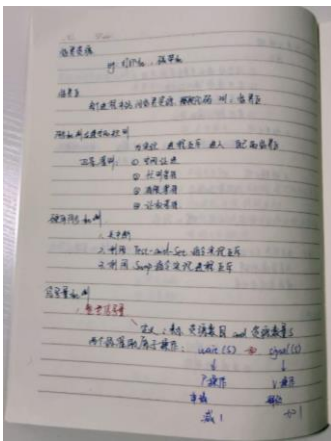 临界资源
eg: 打印机, 磁带机
临界区
每个进程中访问临界资源
同步机制应遵循的规则
四条准则: ① 空闲让进
② 忙则等待
③ 有限等待
④ 让权等待
硬件同步机制
1. 关中断
2. 利用 Test-and-Set 指令实现互斥
3. 利用 Swap 指令实现进程互斥
信号量机制
1. 整型信号量
定义: 表示资源数目 and 资源数量 S
两个标准原子操作: wait(S) 和 signal(S)
P操作 V操作
申请 释放
减1 加1